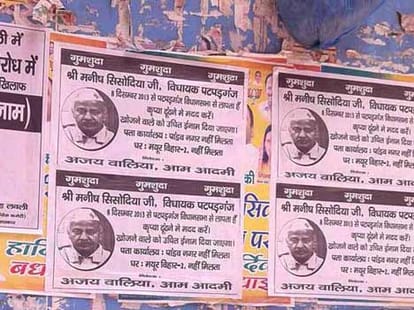 ी में
रोध में
खिलाफ
नाम)
गुमशुदा
श्री मनीष सिसोदिया जी, विधायक पटपड़गंज
8 दिसम्बर 2013 से पटपड़गंज विधानसभा से लापता हैं
कृप्या ढूंढने में मदद करें।
खोजने वाले को उचित ईनाम दिया जाएगा।
पता कार्यालय : पांडव नगर नहीं मिलता
घर : मयूर विहार-2, नहीं मिलता
निवेदक :
अजय वालिया, आम आदमी
गुमशुदा
श्री मनीष सिसोदिया जी, विधायक पटपड़गंज
8 दिसम्बर 2013 से पटपड़गंज विधानसभा से लापता हैं
कृप्या ढूंढने में मदद करें।
खोजने वाले को उचित ईनाम दिया जाएगा।
पता कार्यालय : पांडव नगर नहीं मिलता
घर : मयूर विहार-2, नहीं मिलता
निवेदक :
अजय वालिया, आम आदमी
गुमशुदा
श्री मनीष सिसोदिया जी, विधायक पटपड़गंज
8 दिसम्बर 2013 से पटपड़गंज विधानसभा से लापता हैं
कृप्या ढूंढने में मदद करें।
खोजने वाले को उचित ईनाम दिया जाएगा।
पता कार्यालय : पांडव नगर नहीं मिलता
घर : मयूर विहार-2, नहीं मिलता
अजय वालिया, आम आदमी
गुमशुदा
श्री मनीष सिसोदिया जी, विधायक पटपड़गंज
8 दिसम्बर 2013 से पटपड़गंज विधानसभा से लापता हैं
कृप्या ढूंढने में मदद करें।
खोजने वाले को उचित ईनाम दिया जाएगा।
पता कार्यालय : पांडव नगर नहीं मिलता
घर : मयूर विहार-2, नहीं मिलता
अजय वालिया, आम आदमी
लवली
हार्दि
बध